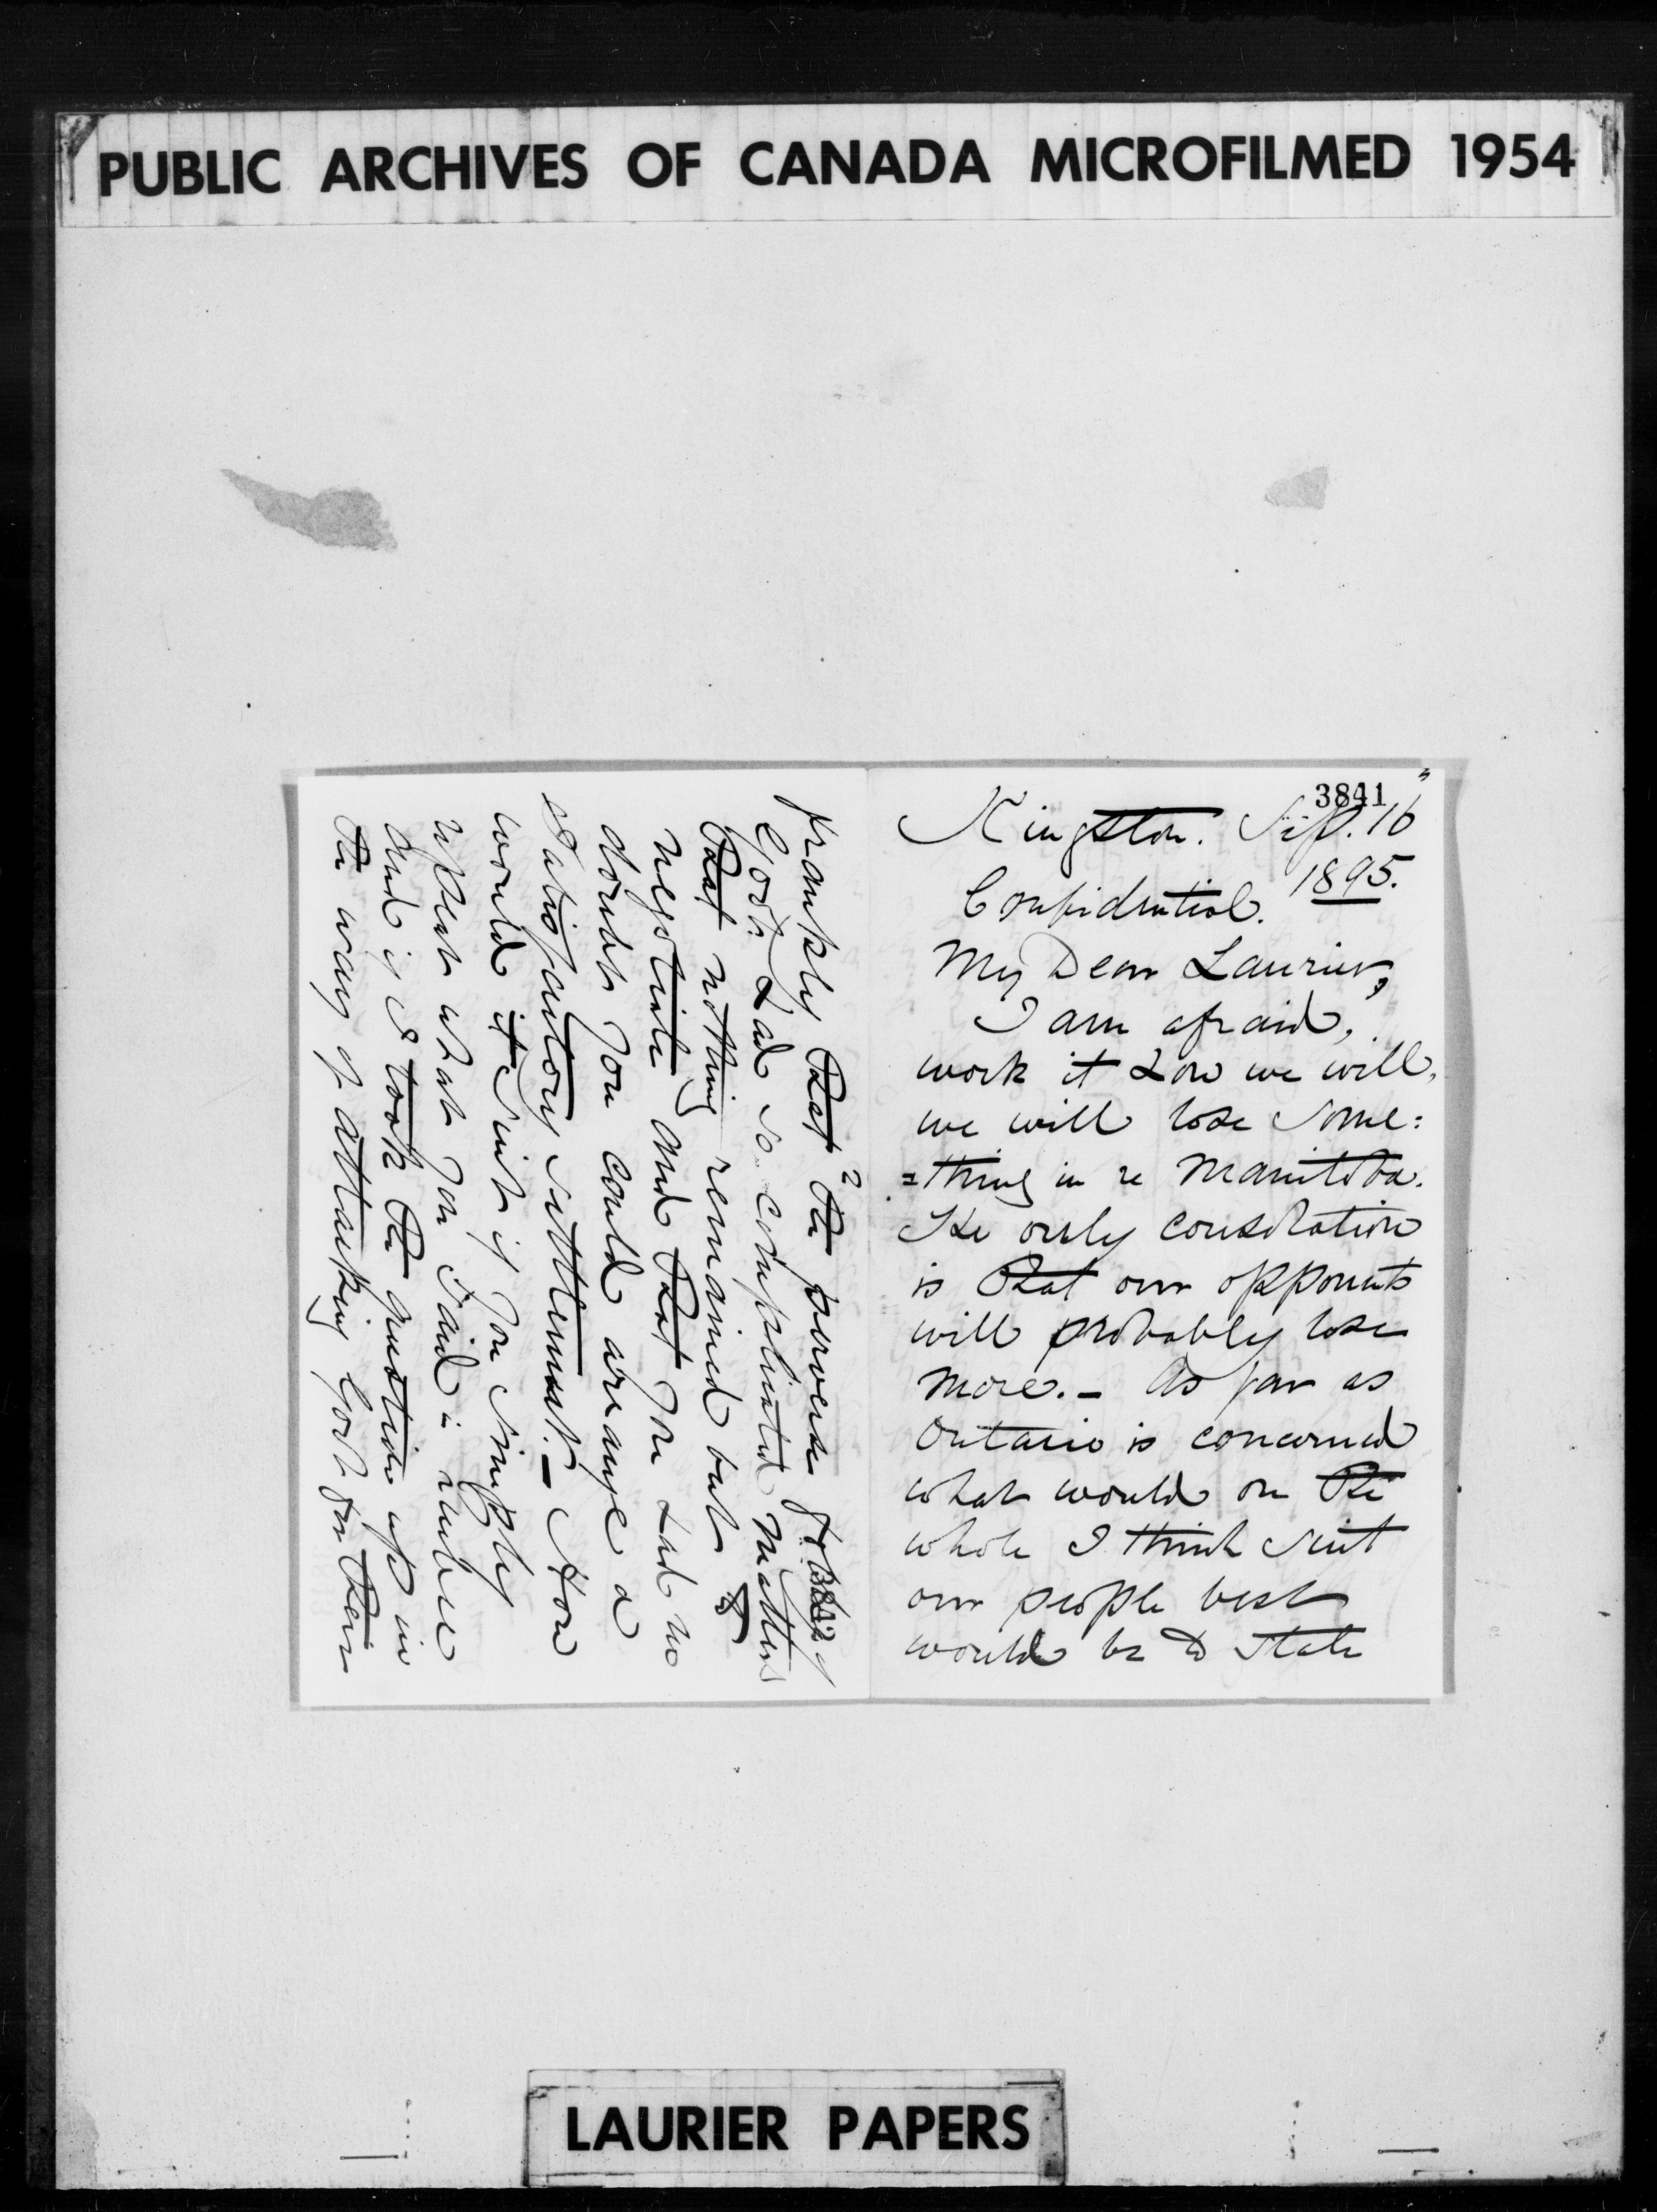 PUBLIC ARCHIVES OF CANADA MICROFILMED 1954
3841
Kingston. Sep. 16
1895.
Confidential.
My Dear Laurier,
I am afraid,
work it how we will,
we will lose some=
=thing in re Manitoba.
The only consolation
is that our opponents
will probably lose
more. - As far as
Ontario is concerned
what would on the
whole I think suit
our people best
would be to state
2
3842
frankly that the perverse
Govt. had so complicated matters
that nothing remained but to
negotiate and that you had no
doubt you could arrange a
satisfactory settlement. - How
would it suit if you simply
repeat what you said in
and if I took the question up in
the way of attacking Govt for their
LAURIER PAPERS